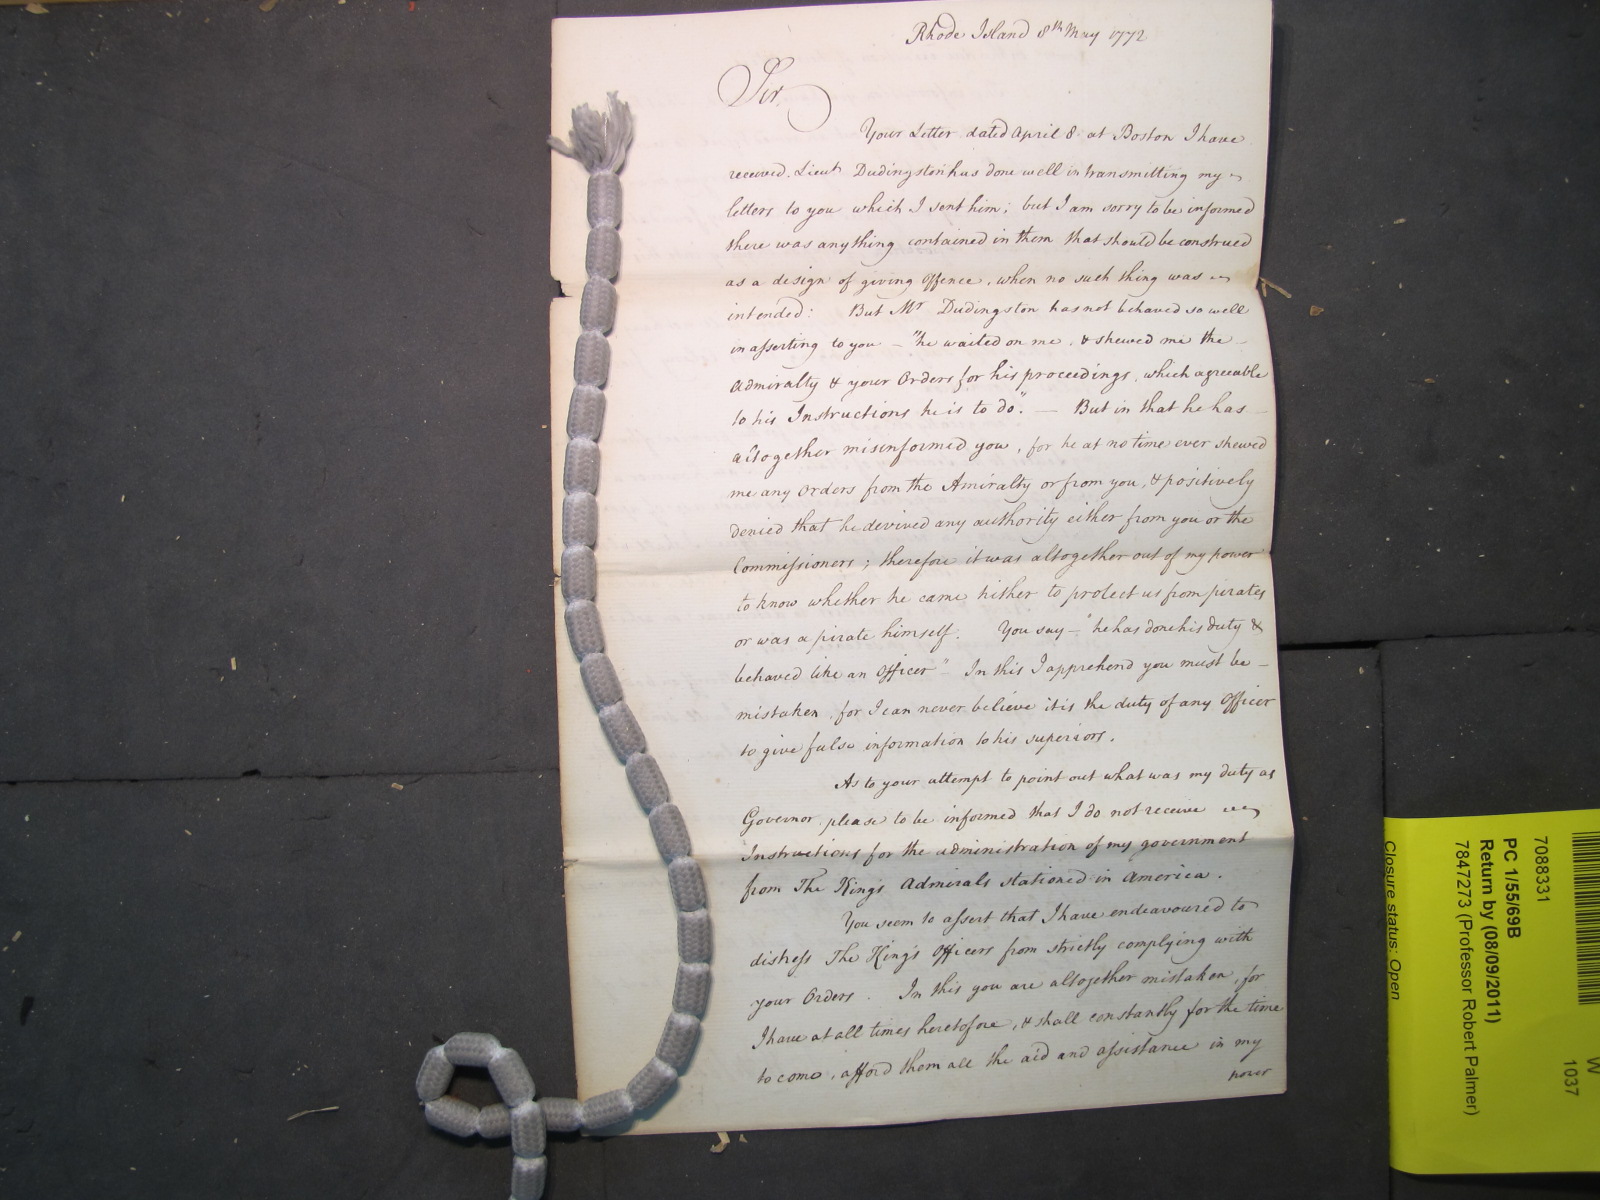 Rhode Island 8th May 1772
Sir.
Your Letter dated April 8 at Boston I have
received. Lieut Dudingston has done well in transmitting my
letters to you which I sent him; but I am sorry to be informed
there was any thing contained in them that should be construed
as a design of giving Offence, when no such thing was
intended: But Mr Dudingston has not behaved so well
in asserting to you – "he waited on me, & shewed me the
Admiralty & your Orders for his proceedings, which agreeable
to his Instructions he is to do". — But in that he has
altogether misinformed you, for he at no time ever shewed
me any Orders from the Amiralty or from you, & positively
denied that he derived any authority either from you or the
Commissioners; therefore it was altogether out of my power
to know whether he came hither to protect us from pirates
or was a pirate himself. You say – "he has done his duty &
behaved like an Officer" – In this I apprehend you must be
mistaken, for I can never believe it is the duty of any Officer
to give false information to his superiors.
As to your attempt to point out what was my duty as
Governor please to be informed that I do not receive
Instructions for the administration of my government
from The King's Admirals stationed in America.
You seem to assert that I have endeavoured to
distress The King's Officers from strictly complying with
your Orders. In this you are altogether mistaken, for
I have at all times heretofore, & shall constantly for the time
to come, afford them all the aid and assistance in my
power
7088331
PC 1/55/69B
Return by (08/09/2011)
7847273 (Professor Robert Palmer)
Closure status: Open
W
1037